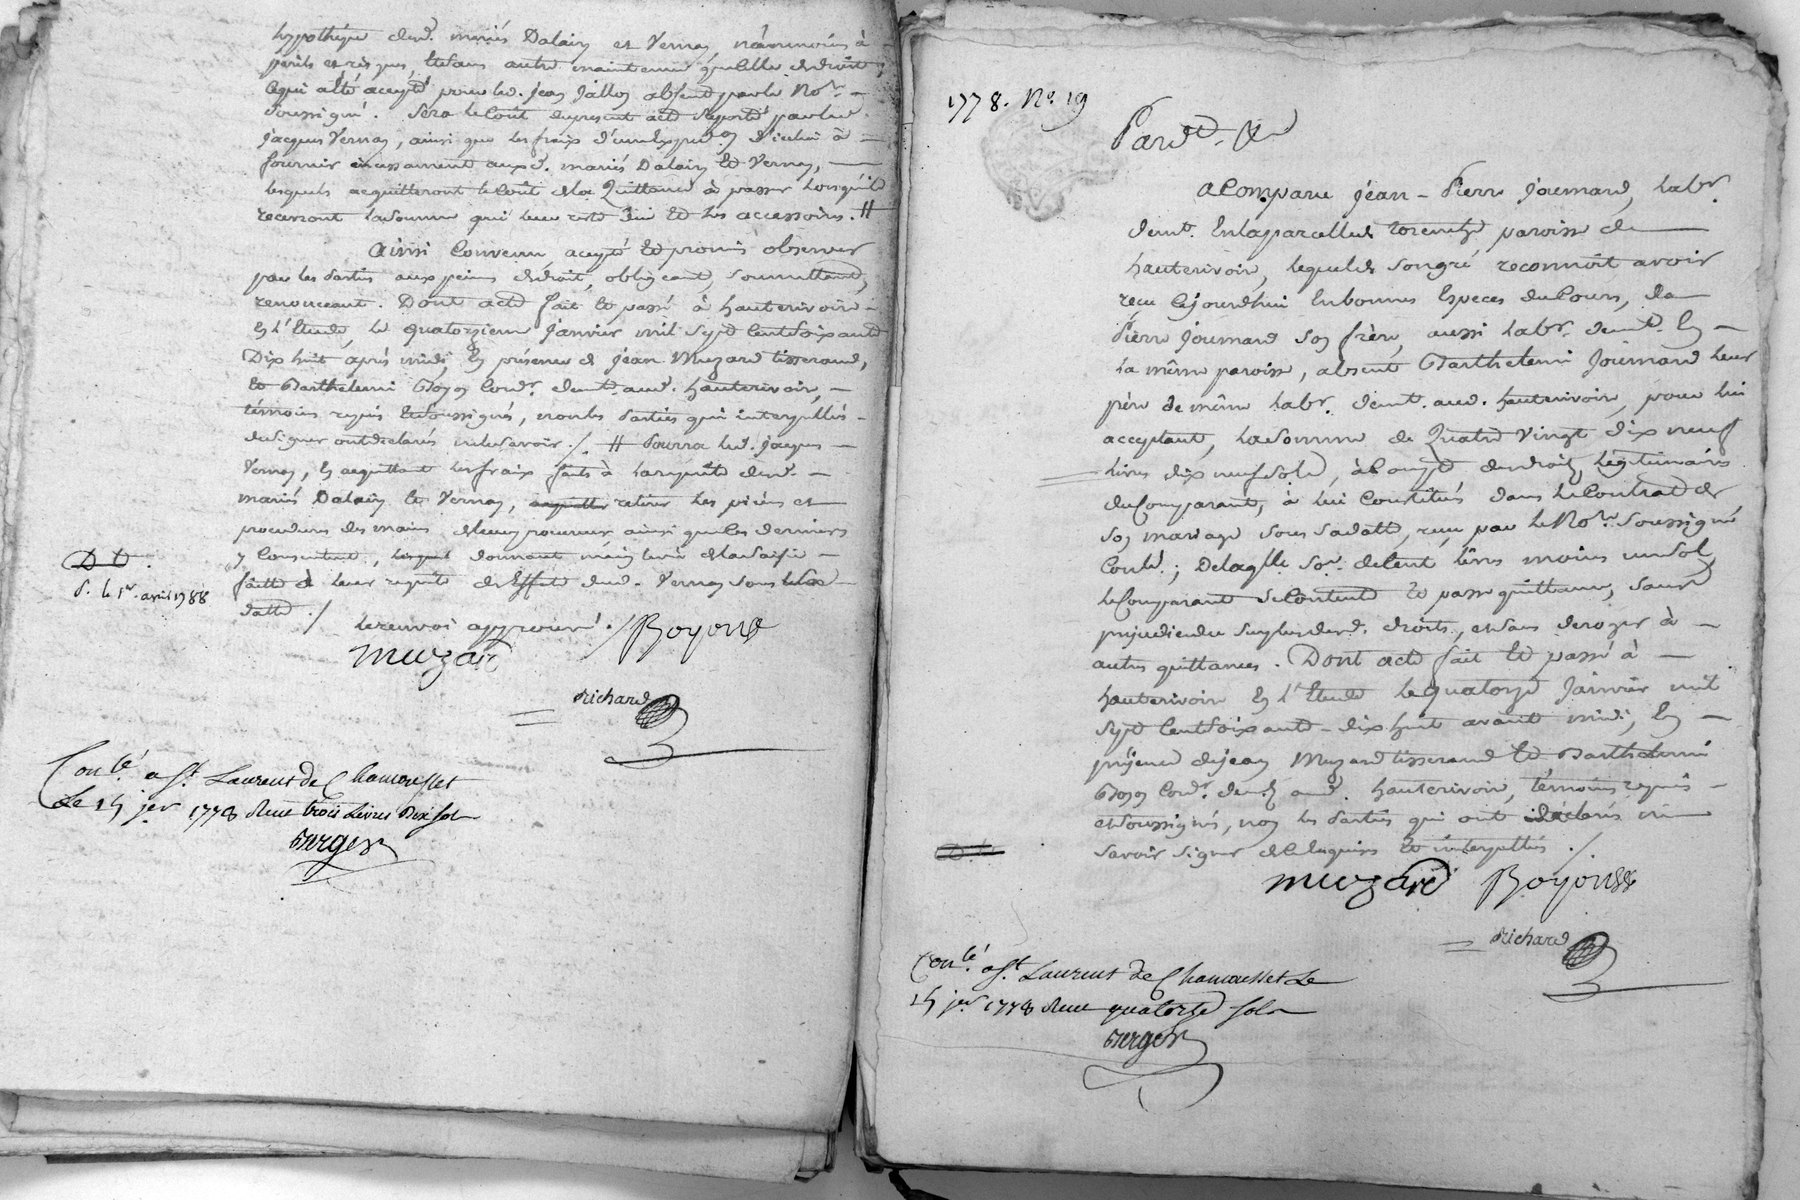 hypothéque desd. mariés Dalaiy et Vernay, néanmoins à
perils et risques, et sans autre maintenue que celle de droit,
Ce qui a été accepté pour led. jean jalloy absent par le No.re
soussigné. Sera le Cout du present acte suporté par led.
jacques Vernay, ainsi que les fraix d'une exped.on d'icelui à
fournir incessament auxd. mariés Dalaiy et Vernay,
lesquels acquitteront le Cout de la Quittance à passer lorsqu'ils
recevront la somme qui leur reste due et les accessoires. #
ainsi Convenu, accepté et promis observer
par les parties aux peines de droit, obligeant, soumettant,
renonceant. Dont acte fait et passé à hauterivoire
en l'Etude, le quatorzieme janvier mil sept Cent soixante
Dix huit après midi, en présence de jean Muzard tisserand,
et Barthelemi Boyon Cord.r demt. aud. hauterivoire,
témoins requis et soussignés, non les parties qui interpellés
de signer ont declarés ne le savoir ./. # pourra led. jacques
Vernay, en acquittant les fraix faits à la requête desd.
mariés Dalaiy et Vernay, retirer les pièces et
procedures des mains de leur procureur ainsi que les derniers
y Consentent, lesquels donnent main levée de la saisie
faitte à leur requête des Effets dud. Vernay sous sa
datte ./. le renvoi approuvé.
D D
S. le 1er. avril 1788
Muzard Boyon
Richard
Conlé. a St. Laurent de Chamousset
Le 15 jer 1778 Reçu trois Livres Dix sols
Berger
1778. No. 19
Pardt. &
a Comparu jean-Pierre joumard, labr.
demt. En la parcelle de paroisse de
hauterivoire, lequel de son gré reconnoit avoir
reçu cejourdhui En bonnes Especes du Cours, de
Pierre joumard son frère, aussi labr. demt. En
la même paroisse, absent Barthelemi Joumard leur
père de même labr. demt. aud. hauterivoire, pour lui
acceptant, la somme de Quatre Vingt dix neuf
livres dix neuf sols, à Compte des droits légitimaires
du Comparant, à lui Constitués dans le Contrat de
son mariage sous sa datte, reçu par le No.re soussigné
Conlé.; De laqlle. so.e de Cent livres moins un sol,
le Comparant se Contente et passe quittance, sauf
préjudice du surplus desd. droits, et sans deroger à
autres quittances. Dont acte fait et passé à
hauterivoire en l'Etude le quatorze Janvier mil
sept Cent soixante-dix huit avant midi, En
présence de jean Muzard tisserand et Barthelemi
Boyon Cord.r demt. aud. hauterivoire, témoins requis
et soussignés, non les parties qui ont déclarés ne
savoir signer de Ce requises et interpellées ./.
D. D.
Muzard Boyon
Richard
Conlé. a St. Laurent de Chamousset Le
15 jer. 1778 Reçu quatorze sols
Berger